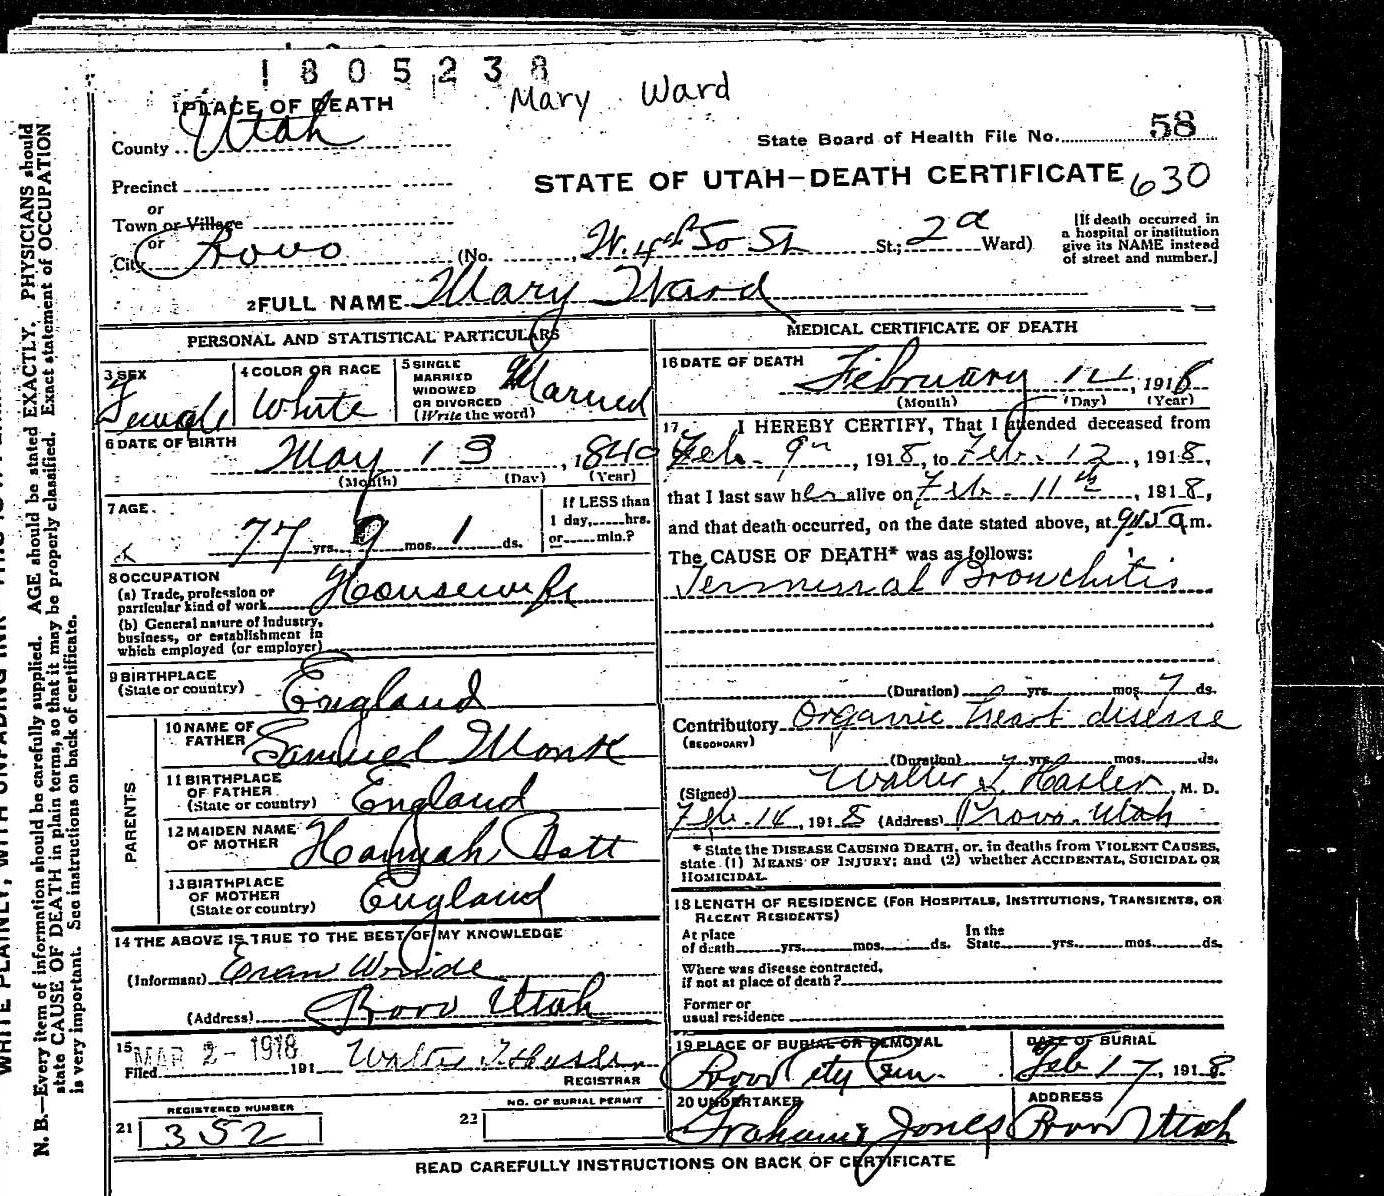 1805238
Mary Ward
1 PLACE OF DEATH
County Utah
State Board of Health File No. 58
Precinct
STATE OF UTAH—DEATH CERTIFICATE 630
or
Town or Village
or
City Provo (No. W. 4th So St St.; 2d Ward)
[If death occurred in
a hospital or institution
give its NAME instead
of street and number.]
2 FULL NAME Mary Ward
PERSONAL AND STATISTICAL PARTICULARS
3 SEX
Female
4 COLOR OR RACE
White
5 SINGLE
MARRIED
WIDOWED
OR DIVORCED
(Write the word)
Married
6 DATE OF BIRTH
May 13, 1840
(Month) (Day) (Year)
7 AGE.
77 yrs. 9 mos. 1 ds.
If LESS than
1 day,......hrs.
or......min.?
8 OCCUPATION
(a) Trade, profession or
particular kind of work Housewife
(b) General nature of industry,
business, or establishment in
which employed (or employer)
9 BIRTHPLACE
(State or country) England
PARENTS
10 NAME OF
FATHER Samuel Monk
11 BIRTHPLACE
OF FATHER
(State or country) England
12 MAIDEN NAME
OF MOTHER Hannah
13 BIRTHPLACE
OF MOTHER
(State or country) England
14 THE ABOVE IS TRUE TO THE BEST OF MY KNOWLEDGE
(Informant) Evan
(Address) Provo Utah
15
Filed MAR 2-1918 191 Walter T. Hasler
REGISTRAR
REGISTERED NUMBER
21 352
NO. OF BURIAL PERMIT
22
MEDICAL CERTIFICATE OF DEATH
16 DATE OF DEATH
February 14, 1918
(Month) (Day) (Year)
17. I HEREBY CERTIFY, That I attended deceased from
Feb. 9th, 1918, to Feb. 12, 1918,
that I last saw her alive on Feb. 11th, 1918,
and that death occurred, on the date stated above, at m.
The CAUSE OF DEATH* was as follows:
Terminal Bronchitis
(Duration) yrs. mos. 7 ds.
Contributory Organic heart disease
(SECONDARY)
(Duration) yrs. mos. ds.
(Signed) Walter T. Hasler, M. D.
Feb. 14, 1918 (Address) Provo. Utah
* State the DISEASE CAUSING DEATH, or, in deaths from VIOLENT CAUSES,
state (1) MEANS OF INJURY; and (2) whether ACCIDENTAL, SUICIDAL OR
HOMICIDAL.
18 LENGTH OF RESIDENCE (FOR HOSPITALS, INSTITUTIONS, TRANSIENTS, OR
RECENT RESIDENTS)
At place
of death yrs. mos. ds.
In the
State yrs. mos. ds.
Where was disease contracted,
if not at place of death?
Former or
usual residence
19 PLACE OF BURIAL OR REMOVAL
Provo City Cem.
DATE OF BURIAL
Feb 17, 1918.
20 UNDERTAKER
Jones
ADDRESS
Provo Utah
READ CAREFULLY INSTRUCTIONS ON BACK OF CERTIFICATE
WRITE PLAINLY, WITH UNFADING INK
N. B.—Every item of information should be carefully supplied. AGE should be stated EXACTLY. PHYSICIANS should
state CAUSE OF DEATH in plain terms, so that it may be properly classified. Exact statement of OCCUPATION
is very important. See instructions on back of certificate.